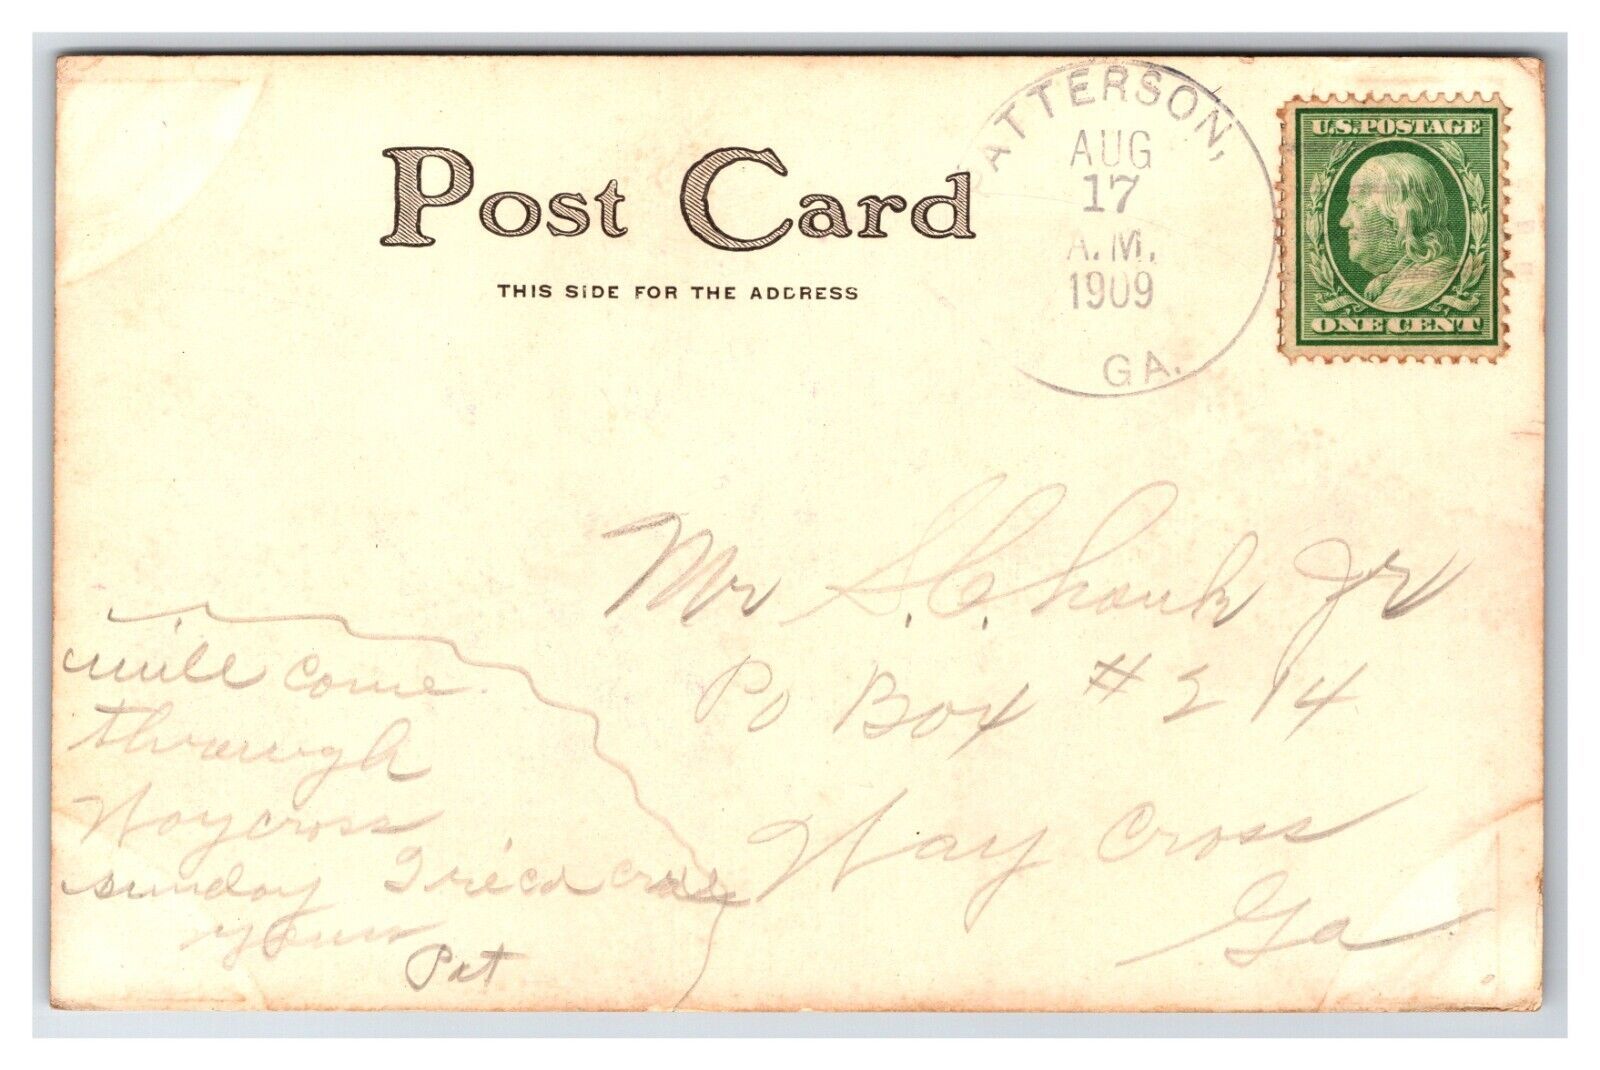 Post Card
THIS SIDE FOR THE ADDRESS
PATTERSON,
AUG
17
A.M.
1909
GA.
U.S. POSTAGE
ONE CENT
Mr S. C.  Jr
PO Box # 214
Way Cross
Ga
will come
through
Waycross
sunday
yours
Pat